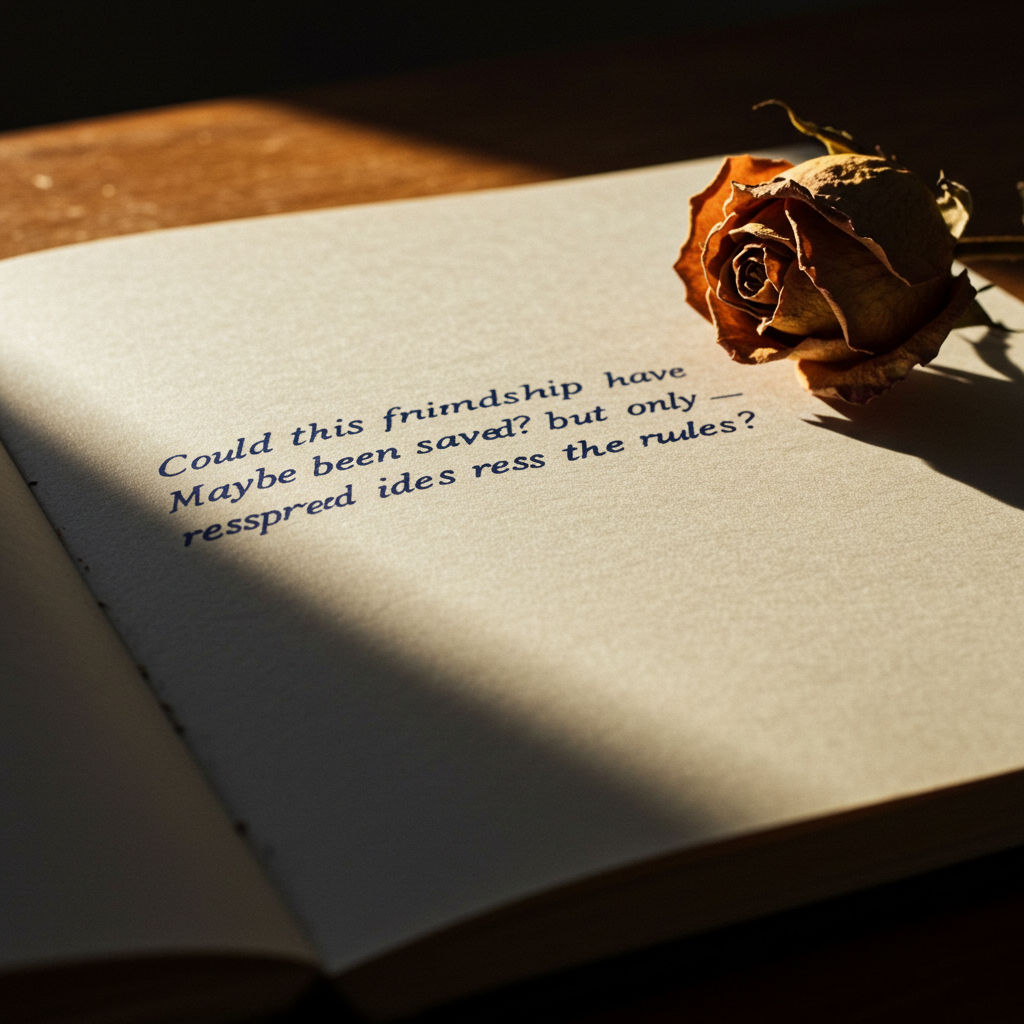 Could this fnimdship have
Maybe been saved? but only —
resspreed ides ress the rules?